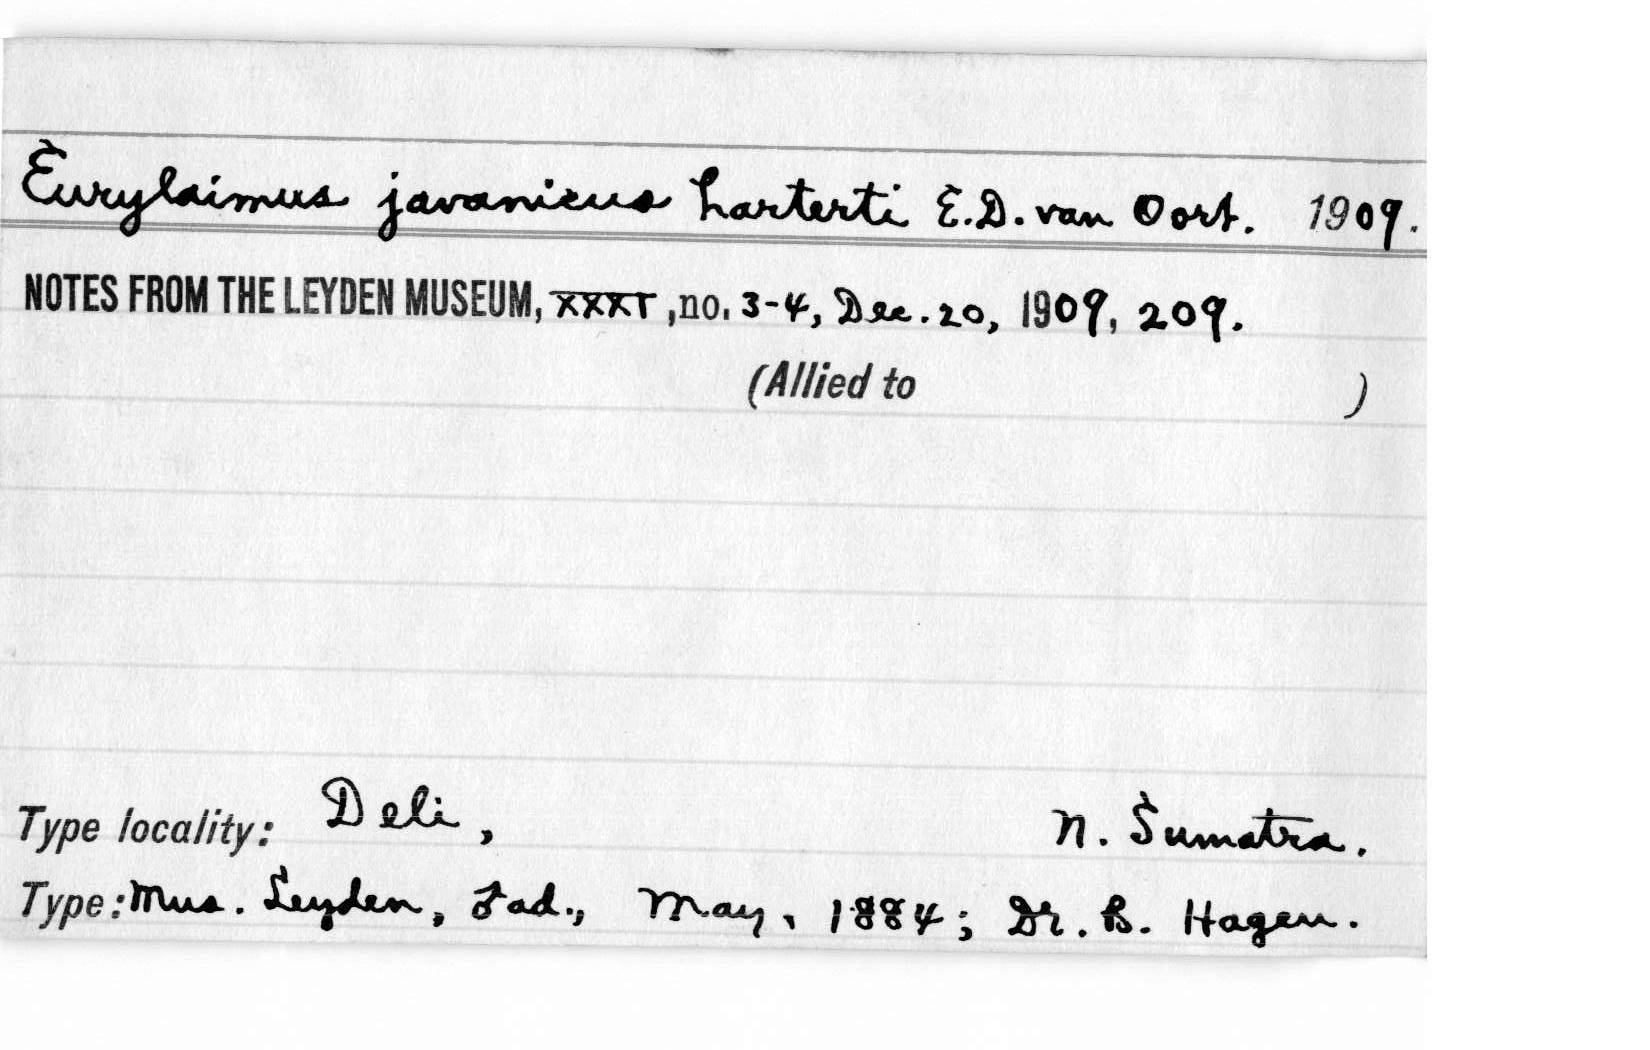 Eurylaimus javanicus harterti E.D. van Oort. 1909.
NOTES FROM THE LEYDEN MUSEUM, XXXI, no. 3-4, Dec. 20, 1909, 209.
(Allied to )
Type locality: Deli, N. Sumatra.
Type: Mus. Leyden, ♂ ad., May, 1884; Dr. B. Hagen.